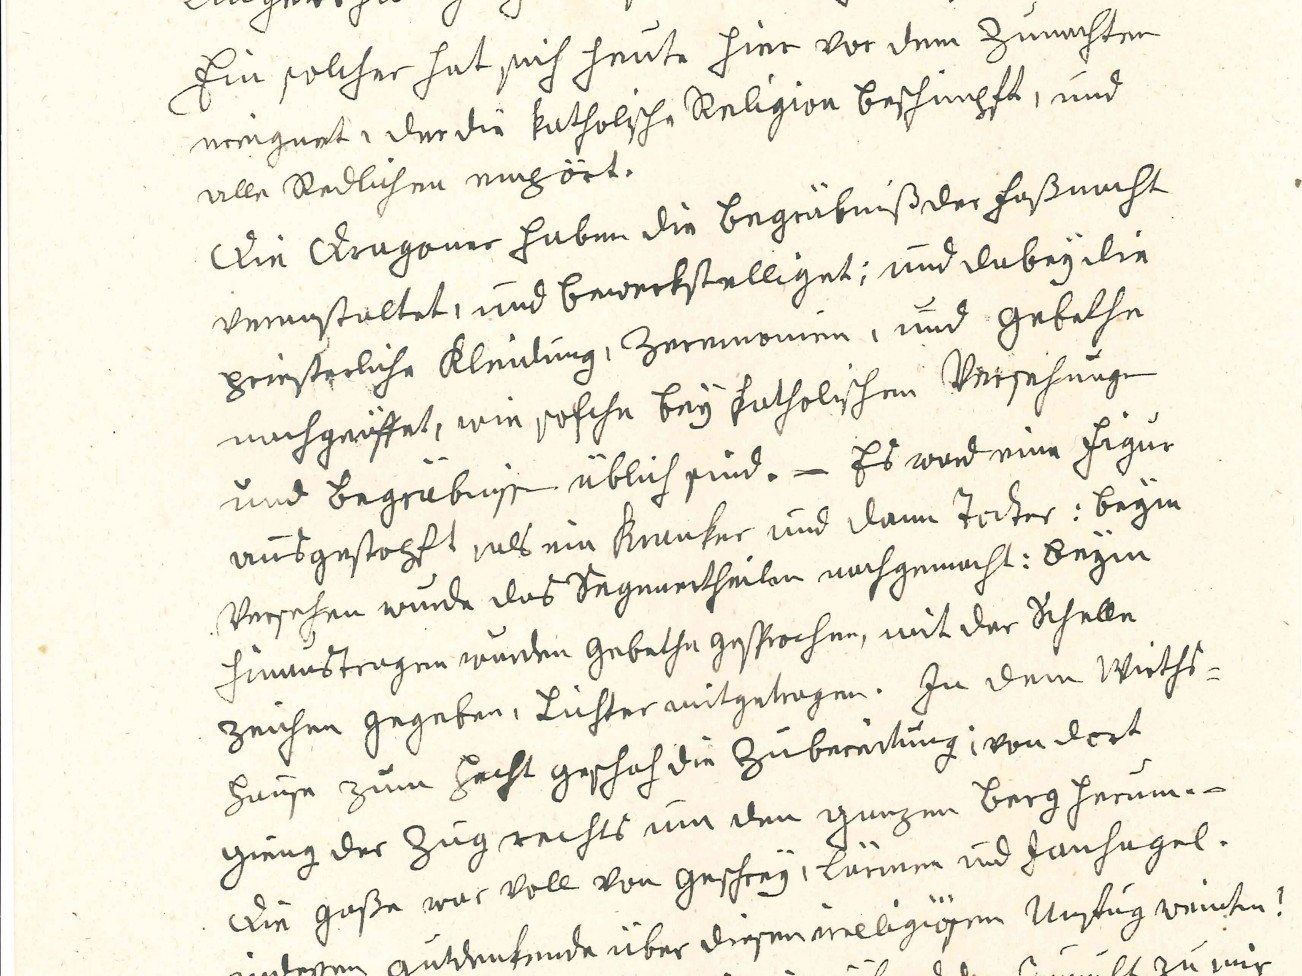 Ein solcher hat sich heute hier vor dem Zunachten
ereignet, der die katholische Religion beschimpft, und
alle Redlichen empört.
Die Dragoner haben die Begräbniß der Faßnacht
veranstaltet, und bewerkstelliget; und dabey die
priesterliche Kleidung, Zeremonien, und Gebethe
nachgeäffet, wie solche bey katholischen Versehungen
und Begräbnissen üblich sind. — Es ward eine Figur
ausgestopft, als ein Kranker und dann Todter: beym
Versehen wurde das Segenertheilen nachgemacht: beym
hinaustragen wurden Gebethe gesprochen, mit der Schelle
zeichen gegeben, Lichter mitgetragen. In dem Wirths=
hause zum Hecht geschah die Zubereitung; von dort
gieng der Zug rechts um den ganzen Berg herum. —
Die Gaße war voll von Geschrey, Lärmen und Janhagel.
indessen gutdenkende über diesen irreligiösen Unfug weinten!
zu mir